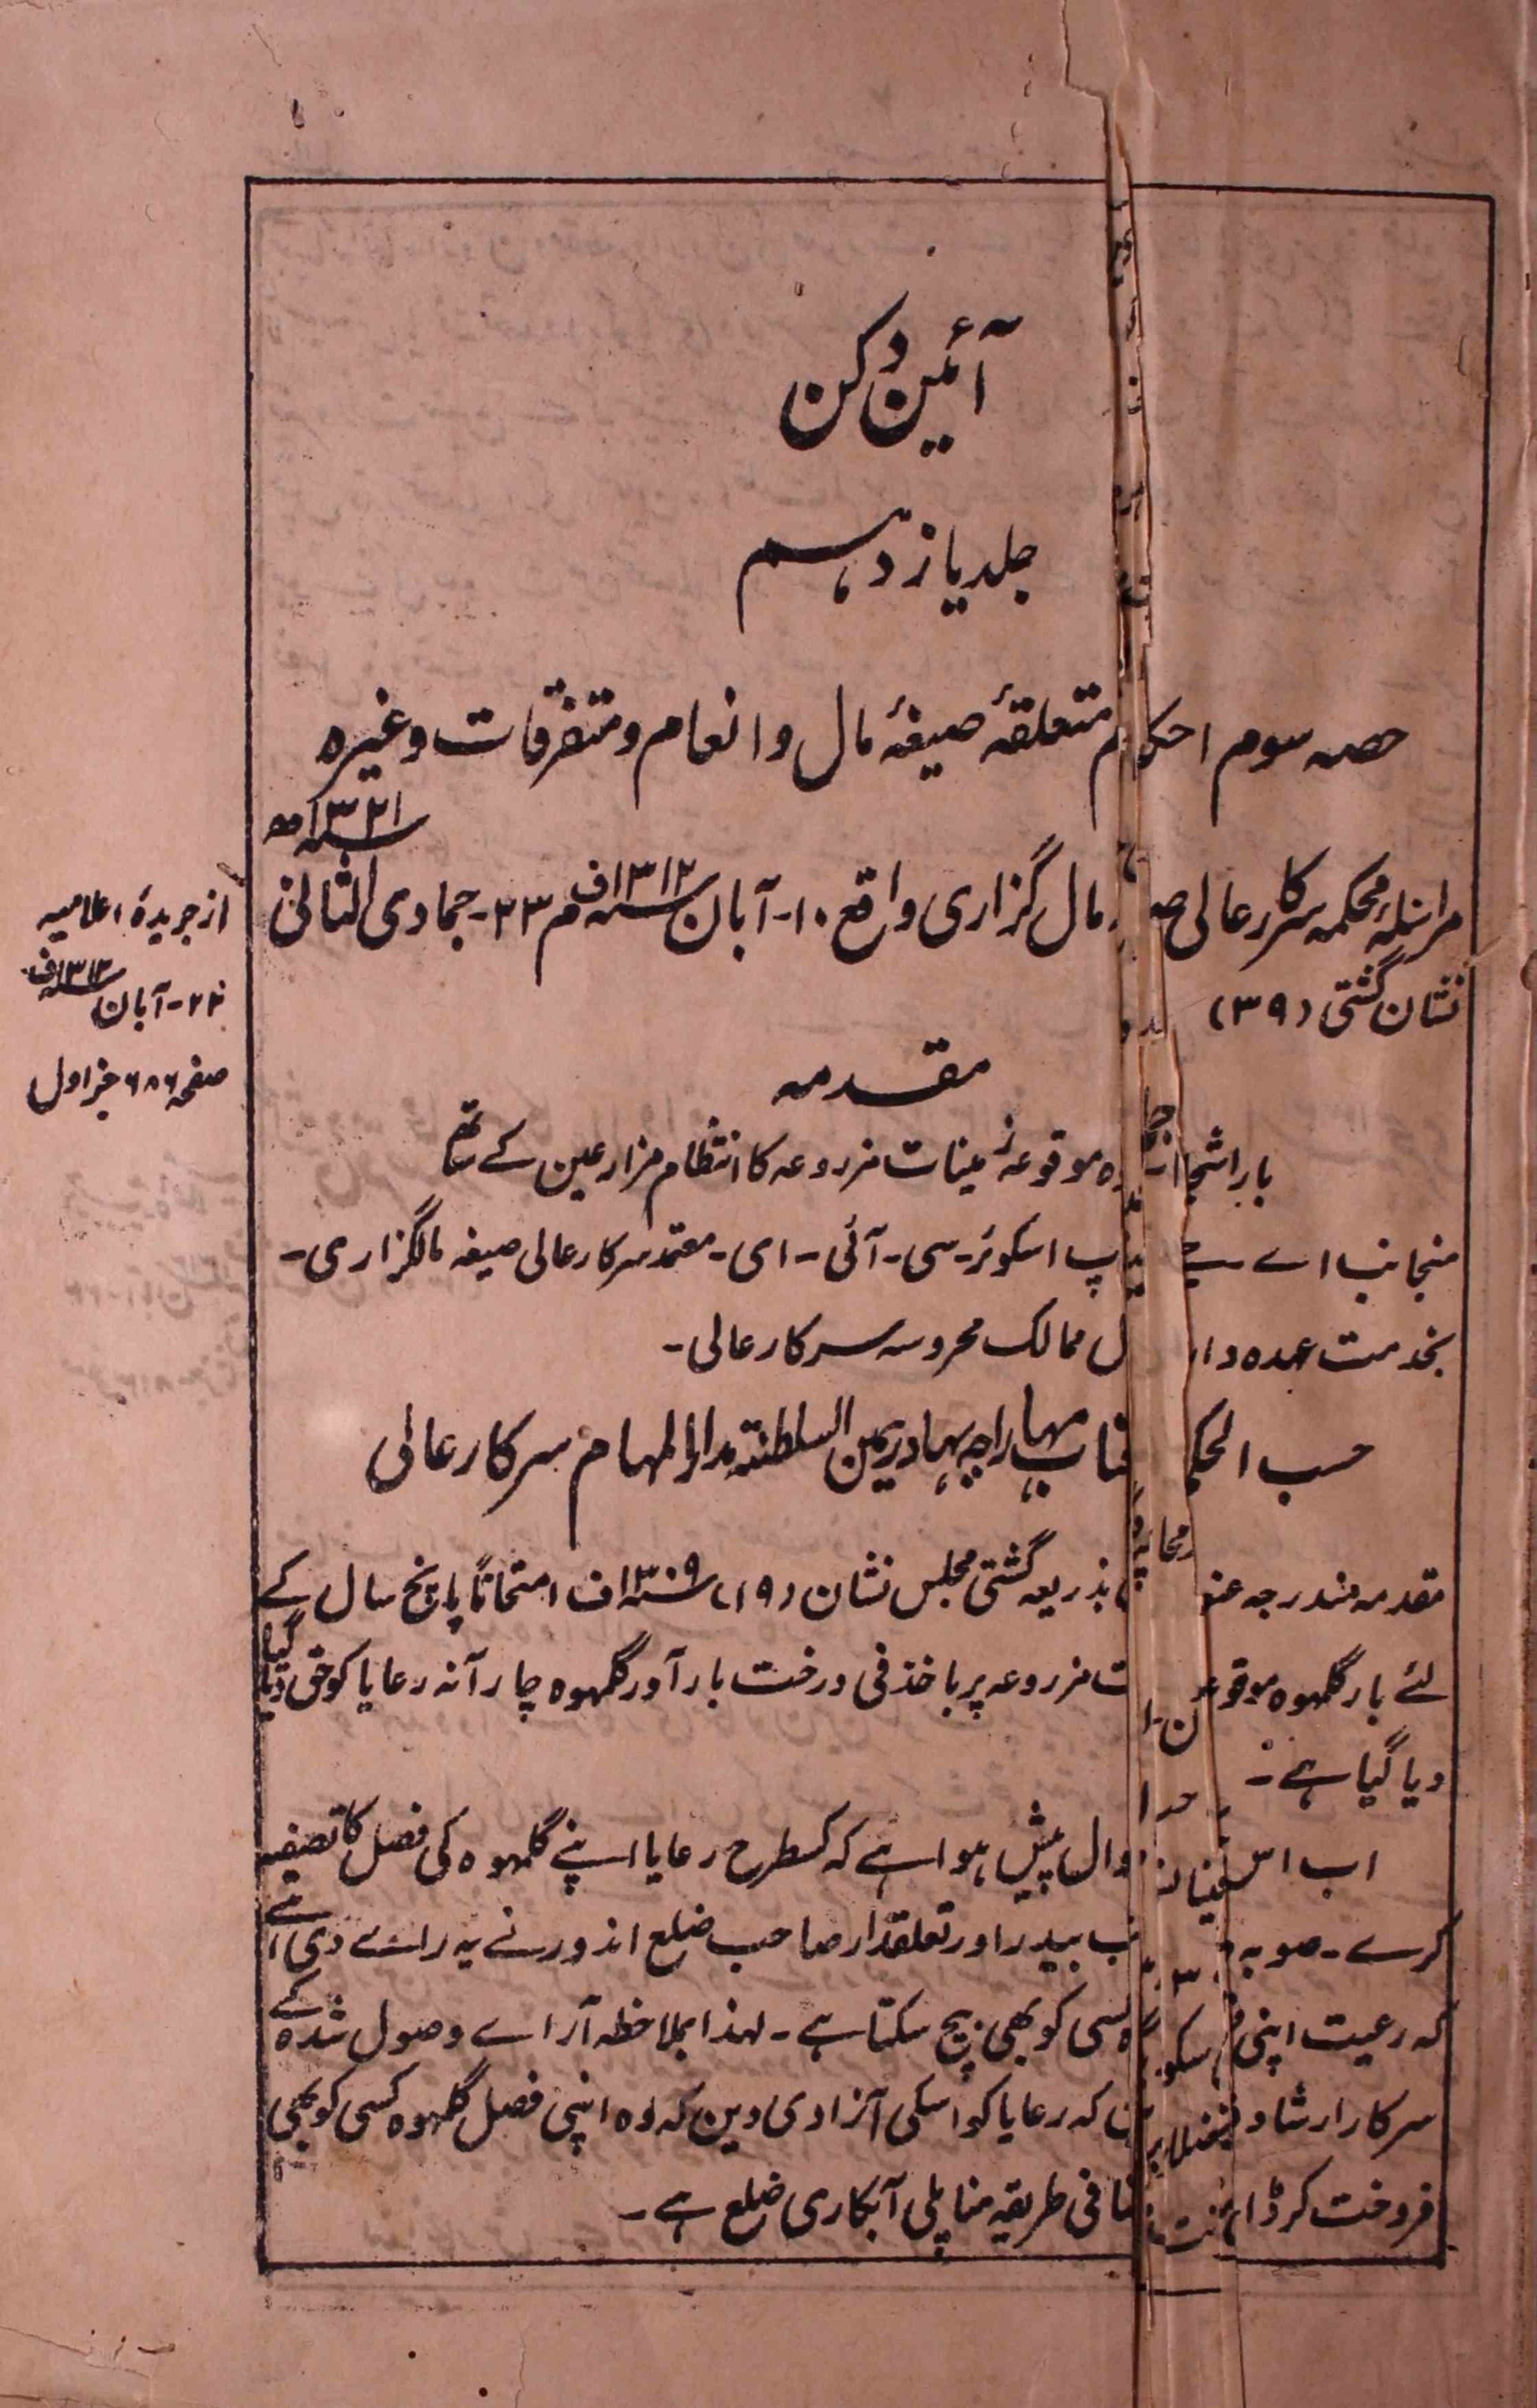 آئین دکن
جلد یازدہم
حصہ سوم احکام متعلقۂ صیغۂ مال وانعام ومتفرقات وغیرہ
مراسلۂ محکمہ سرکارعالی مال گزاری واقع ۱۰- آبان ۱۳۱۲ف م ۲۳- جمادی الثانی ۱۳۲۱ھ
نشان گشتی (۳۹)
مقدمہ
بار اشجار موقوعہ زمینات مزروعہ کا انتظام مزارعین کے ساتھ
منجانب اے اسکوئر- سی- آئی- ای- معتمد سرکارعالی صیغہ مالگزاری-
بخدمت عہدہ داران ممالک محروسہ سرکارعالی-
حسب الحکم جناب مہاراجہ بہادر یمین السلطنتہ مدارالمہام سرکارعالی
مقدمہ مندرجہ بذریعہ گشتی مجلس نشان (۱۹) ۱۳۰۹ف امتحاناً پانچ سال کے
لئے بار گلہوہ موقوعہ مزروعہ پر باخذ فی درخت بارآور گلہوہ چار آنہ رعایا کو حق دیا گیا
دیا گیا ہے-
اب اس سوال پیش ہوا ہے کہ کسطرح رعایا اپنے گلہوہ کی فصل کا تصفیہ
کرے- صوبہ بیدر اور تعلقدار صاحب ضلع اندور نے یہ رائے دی ہے
کہ رعیت اپنی کسی کو بھی بیچ سکتا ہے- لہذا بملاحظہ آراے وصول شدہ کے
سرکار ارشاد کہ رعایا کو اسکی آزادی دین کہ وہ اپنی فصل گلہوہ کسی کو بھی
فروخت کر منافی طریقہ مناپلی آبکاری ضلع ہے-
از جریدۂ اعلامیہ
۲۴- آبان ۱۳۱۲ف
صفحہ ۶۸۶ جزاول